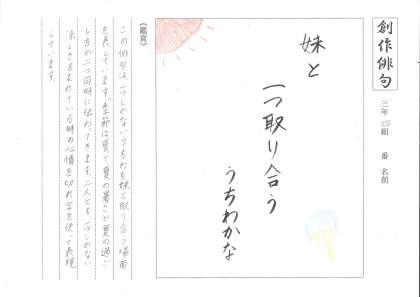 創作俳句
三年四組 番 名前
妹と
一つ取り合う
うちわかな
《鑑賞》
この俳句は、一つしかないうちわを妹と取り合う場面
を表しています。季節は夏で、夏の暑さや夏の過ご
し方が二つ同時に伝わってきます。二人とも一つしかない
涼しさを求めている時の心情を切れ字を使って表現
しています。